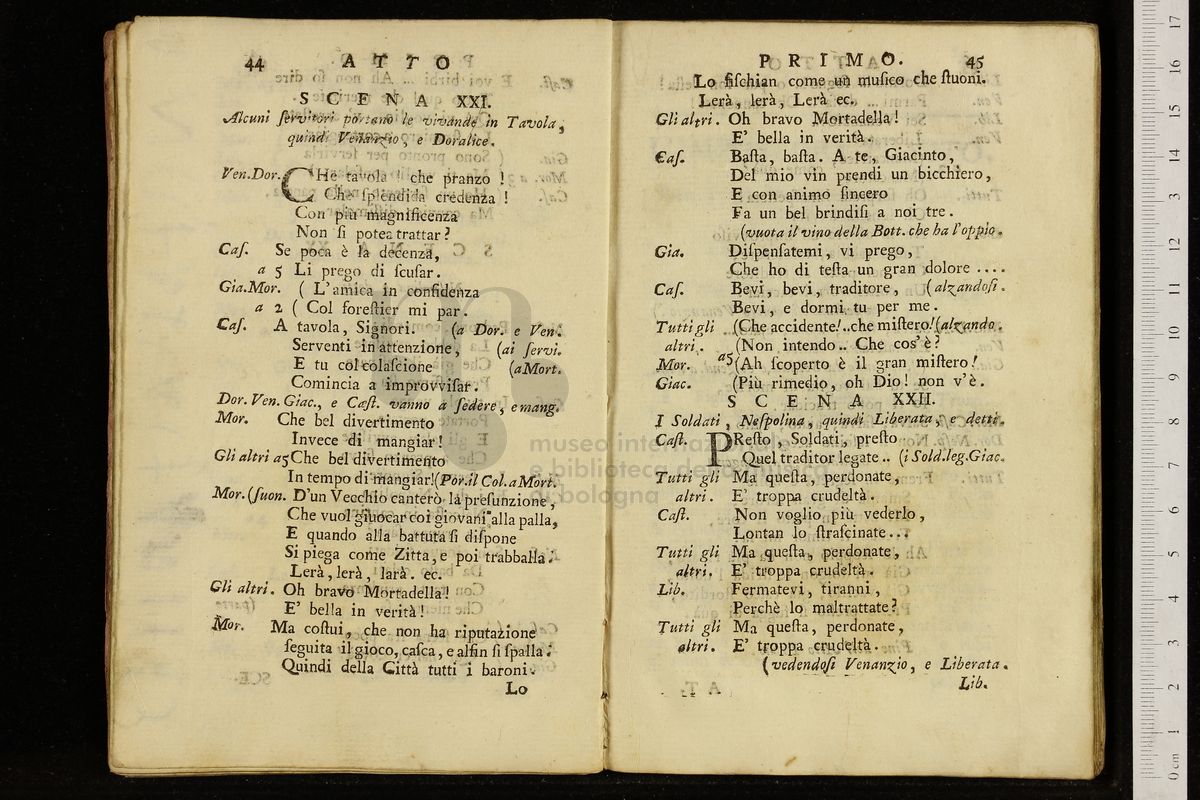 44 A T T O
S C E N A XXI.
Alcuni ſervitori portano le vivande in Tavola,
quindi Venanzio, e Doralice.
Ven. Dor. CHe tavola! che pranzo!
Che ſplendida credenza!
Con più magnificenza
Non ſi potea trattar?
Caſ. Se poca è la decenza,
a 5 Li prego di ſcuſar.
Gia. Mor. ( L'amica in confidenza
a 2 ( Col foreſtier mi par.
Caſ. A tavola, Signori. (a Dor. e Ven.
Serventi in attenzione, (ai ſervi.
E tu col colaſcione (a Mort.
Comincia a improvviſar.
Dor. Ven. Giac., e Caſt. vanno a ſedere, e mang.
Mor. Che bel divertimento
Invece di mangiar!
Gli altri a5 Che bel divertimento
In tempo di mangiar! (Por. il Col. a Mort.
Mor. (ſuon. D'un Vecchio canterò la preſunzione,
Che vuol giuocar coi giovani alla palla,
E quando alla battuta ſi diſpone
Si piega come Zitta, e poi trabballa:
Lerà, lerà, larà. ec.
Gli altri. Oh bravo Mortadella!
E' bella in verità!
Mor. Ma coſtui, che non ha riputazione
ſeguita il gioco, caſca, e alfin ſi ſpalla:
Quindi della Città tutti i baroni
Lo
P R I M O. 45
Lo fiſchian come un muſico che ſtuoni.
Lerà, lerà, Lerà ec.
Gli altri. Oh bravo Mortadella!
E' bella in verità.
Caſ. Baſta, baſta. A te, Giacinto,
Del mio vin prendi un bicchiero,
E con animo ſincero
Fa un bel brindiſi a noi tre.
(vuota il vino della Bott. che ha l'oppio.
Gia. Diſpenſatemi, vi prego,
Che ho di teſta un gran dolore ....
Caſ. Bevi, bevi, traditore, (alzandoſi.
Bevi, e dormi tu per me.
Tutti gli (Che accidente!..che miſtero! (alzando.
altri. (Non intendo.. Che cos'è?
Mor. a5 (Ah ſcoperto è il gran miſtero!
Giac. (Più rimedio, oh Dio! non v'è.
S C E N A XXII.
I Soldati, Neſpolina, quindi Liberata, e detti.
Caſt. PReſto, Soldati, preſto
Quel traditor legate.. (i Sold. leg. Giac.
Tutti gli Ma queſta, perdonate,
altri. E' troppa crudeltà.
Caſt. Non voglio più vederlo,
Lontan lo ſtraſcinate...
Tutti gli Ma queſta, perdonate,
altri. E' troppa crudeltà.
Lib. Fermatevi, tiranni,
Perchè lo maltrattate?
Tutti gli Ma queſta, perdonate,
altri. E' troppa crudeltà.
(vedendoſi Venanzio, e Liberata.
Lib.
museo internazionale
e biblioteca della musica
di bologna
0 cm 1 2 3 4 5 6 7 8 9 10 11 12 13 14 15 16 17